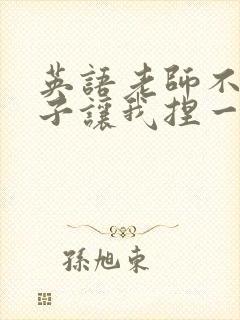 英語老師不
子讓我捏一
孫旭東